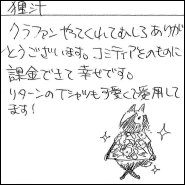 狸汁
クラファンやってくれてむしろありが
とうございます。コミティアそのものに
課金できて幸せです。
リターンのTシャツも可愛くて愛用して
ます!